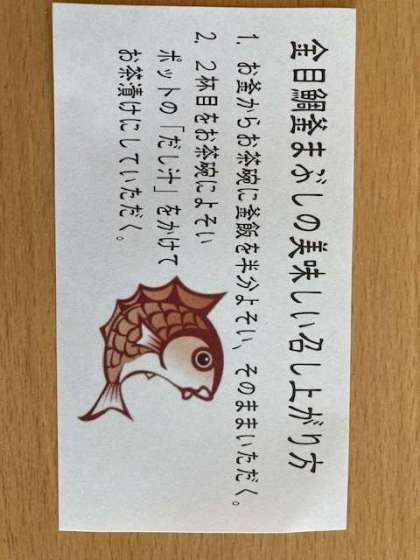 金目鯛釜まぶしの美味しい召し上がり方
1. お釜からお茶碗に釜飯を半分よそい、そのままいただく。
2. 2杯目をお茶碗によそい
ポットの「だし汁」をかけて
お茶漬けにしていただく。